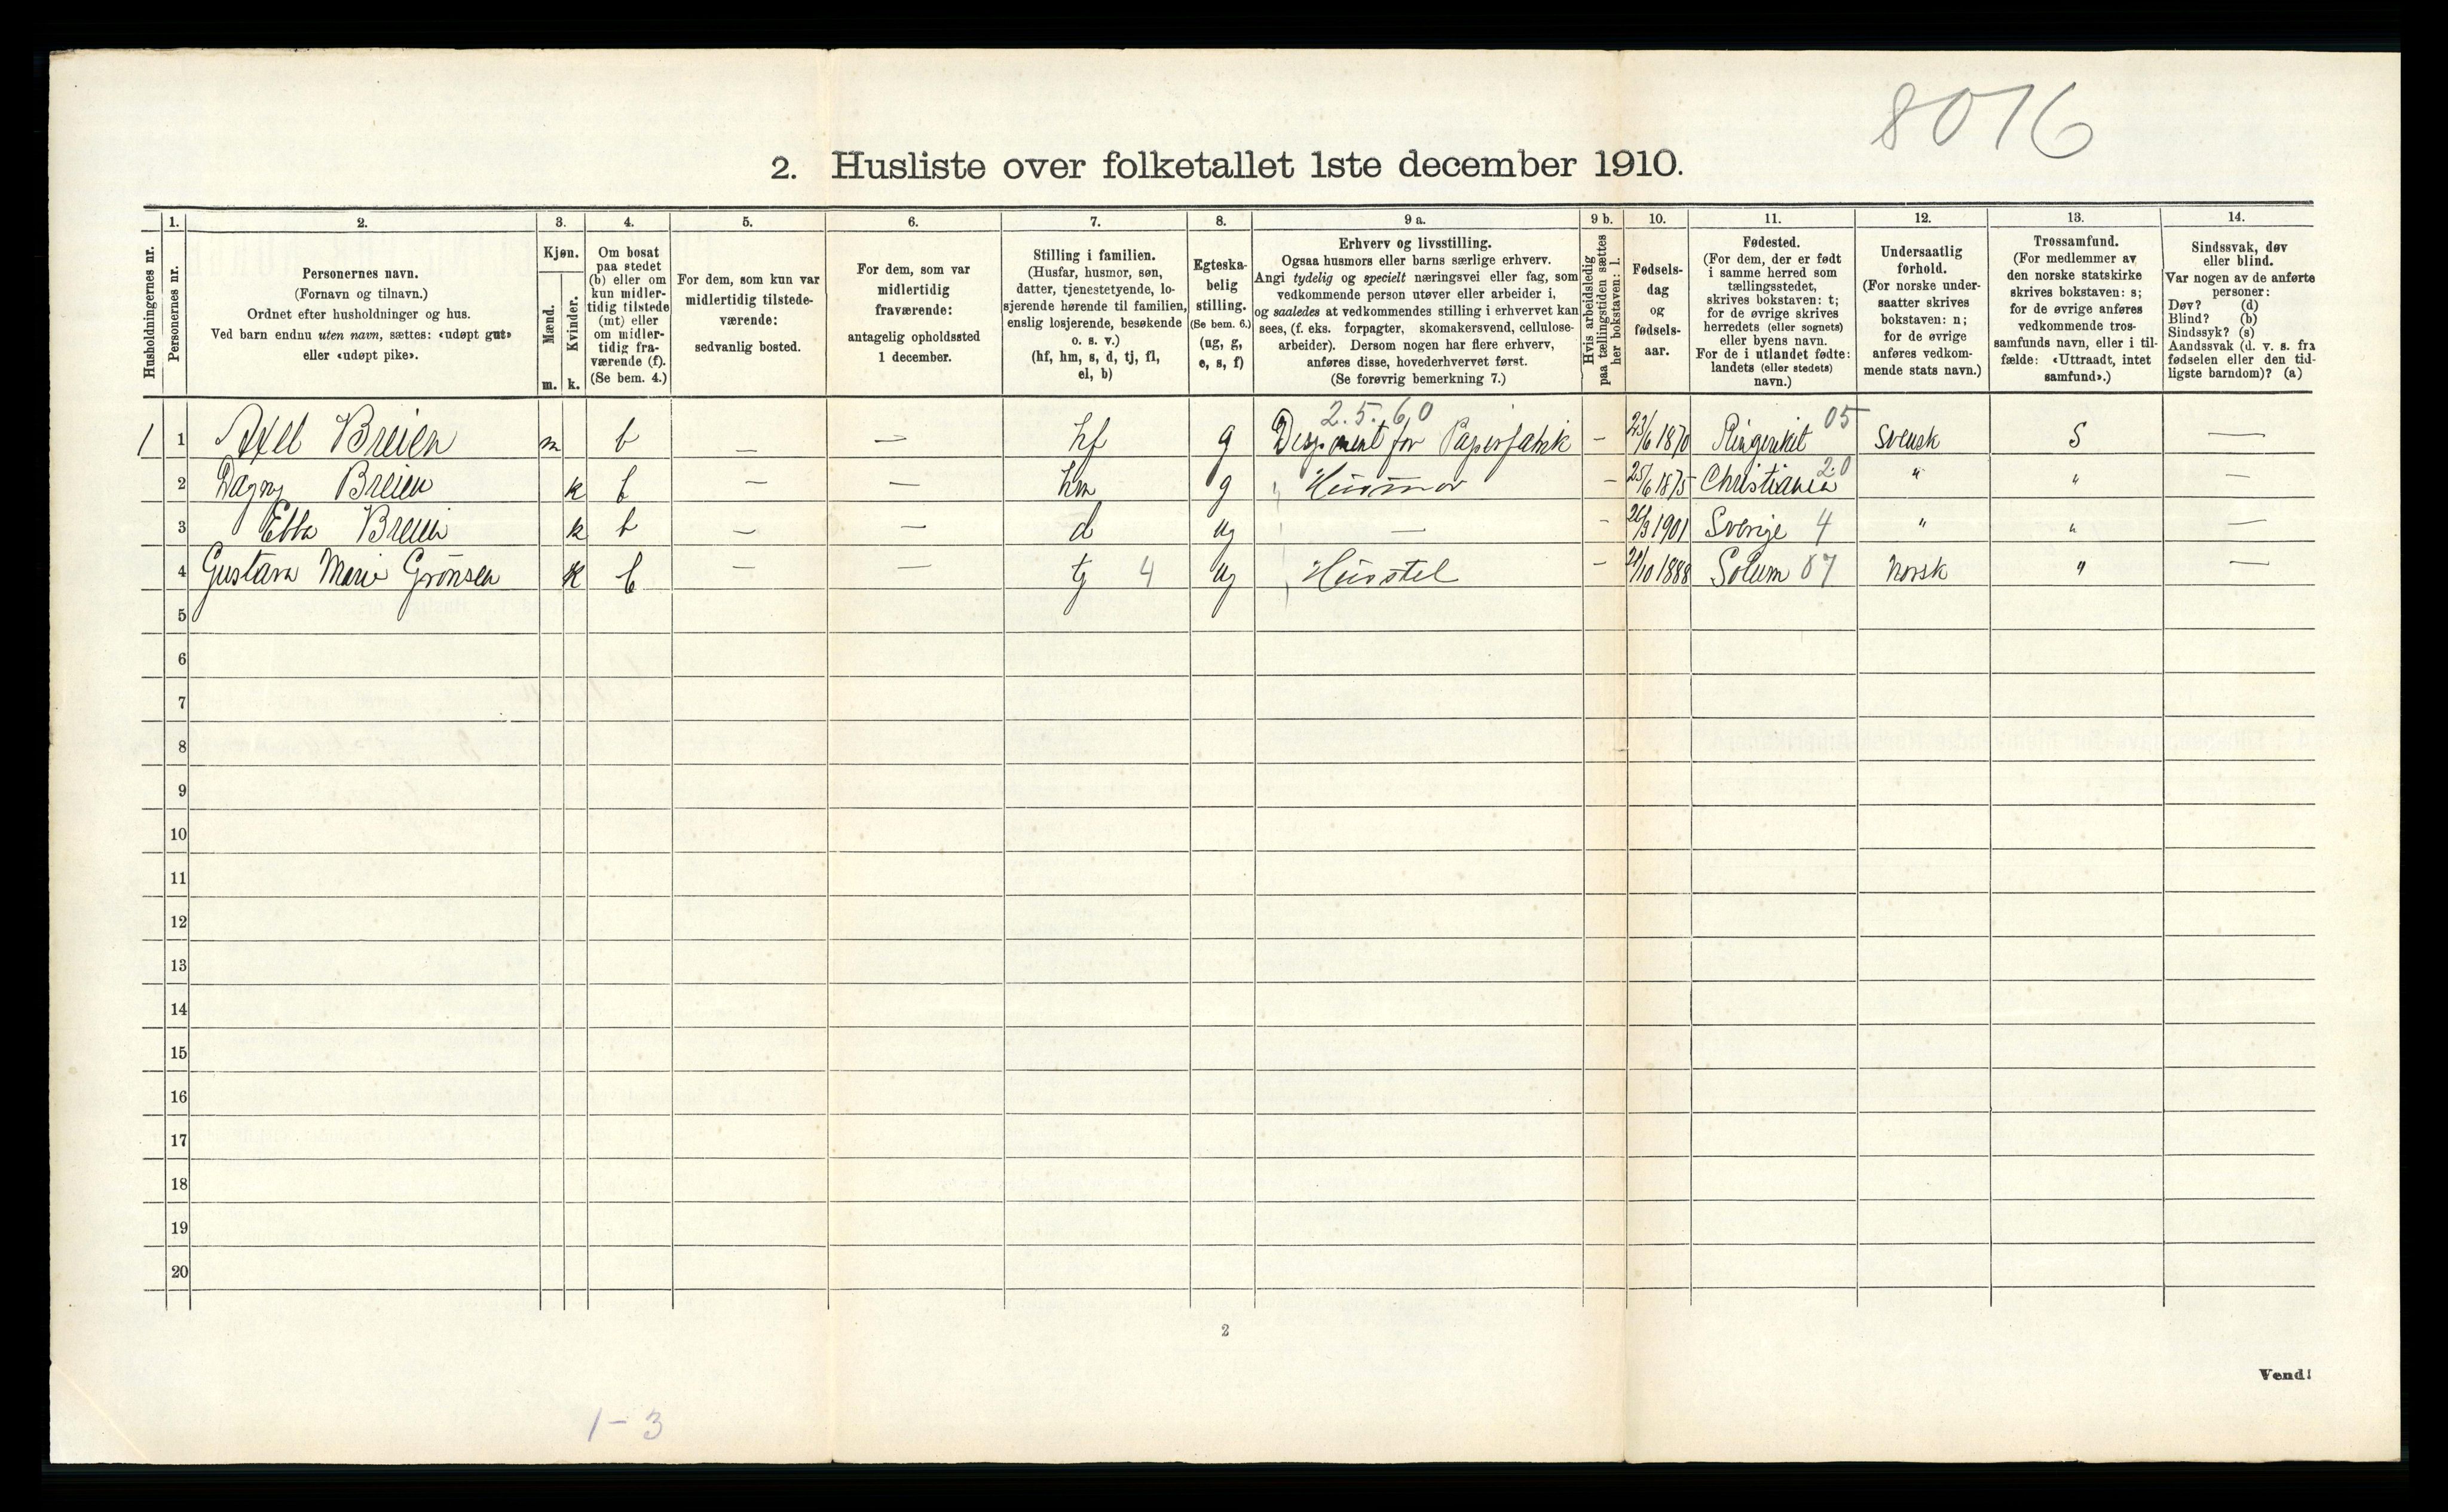 8016
2. Husliste over folketallet 1ste december 1910.
Husholdningernes nr.
1.
Personernes nr.
2.
Personernes navn.
(Fornavn og tilnavn.)
Ordnet efter husholdninger og hus.
Ved barn endnu uten navn, sættes: «udøpt gut»
eller «udøpt pike».
3.
Kjøn.
Mænd.
Kvinder.
m. k.
4.
Om bosat
paa stedet
(b) eller om
kun midler-
tidig tilstede
(mt) eller
om midler-
tidig fra-
værende (f).
(Se bem. 4.)
5.
For dem, som kun var
midlertidig tilstede-
værende:
sedvanlig bosted.
6.
For dem, som var
midlertidig
fraværende:
antagelig opholdssted
1 december.
7.
Stilling i familien.
(Husfar, husmor, søn,
datter, tjenestetyende, lo-
sjerende hørende til familien,
enslig losjerende, besøkende
o. s. v.)
(hf, hm, s, d, tj, fl,
el, b)
8.
Egteska-
belig
stilling.
(Se bem. 6.)
(ug, g,
e, s, f)
9 a.
Erhverv og livsstilling.
Ogsaa husmors eller barns særlige erhverv.
Angi tydelig og specielt næringsvei eller fag, som
vedkommende person utøver eller arbeider i,
og saaledes at vedkommendes stilling i erhvervet kan
sees, (f. eks. forpagter, skomakersvend, cellulose-
arbeider). Dersom nogen har flere erhverv,
anføres disse, hovederhvervet først.
(Se forøvrig bemerkning 7.)
9 b.
Hvis arbeidsledig
paa tællingstiden sættes
her bokstaven: l.
10.
Fødsels-
dag
og
fødsels-
aar.
11.
Fødested.
(For dem, der er født
i samme herred som
tællingsstedet,
skrives bokstaven: t;
for de øvrige skrives
herredets (eller sognets)
eller byens navn.
For de i utlandet fødte:
landets (eller stedets)
navn.)
12.
Undersaatlig
forhold.
(For norske under-
saatter skrives
bokstaven: n;
for de øvrige
anføres vedkom-
mende stats navn.)
13.
Trossamfund.
(For medlemmer av
den norske statskirke
skrives bokstaven: s;
for de øvrige anføres
vedkommende tros-
samfunds navn, eller i til-
fælde: «Uttraadt, intet
samfund».)
14.
Sindssvak, døv
eller blind.
Var nogen av de anførte
personer:
Døv? (d)
Blind? (b)
Sindssyk? (s)
Aandssvak (d. v. s. fra
fødselen eller den tid-
ligste barndom)? (a)
2.5.60 05
1 1 Axel Breien m b — — hf g Disponent for Papirfabrik – 23/6 1870 Ringeriket Svensk S —
20
2 Dagny Breien k b — — hm g Husmor – 25/6 1875 Christiania " " —
3 Ebba Breien k b — — d ug — – 26/3 1901 Sverige 4 " " —
4 Gustava Marie Grönsen k b — — tj 4 ug Husstel – /10 1888 Solum 07 Norsk " —
5
6
7
8
9
10
11
12
13
14
15
16
17
18
19
20
2
Vend!
1–3